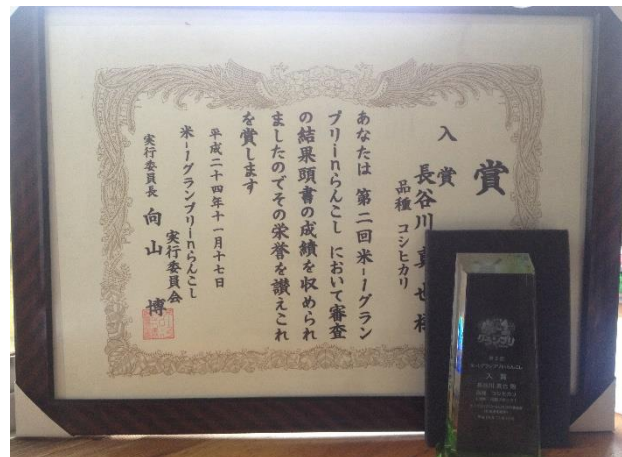 賞
入賞
長谷川真也様
品種 コシヒカリ
あなたは 第二回米-1グラン
プリinらんこし において審査
の結果頭書の成績を収められ
ましたのでその栄誉を讃えこれ
を賞します
平成二十四年十一月十七日
米-1グランプリinらんこし
実行委員会
実行委員長 向山 博
グランプリ
入賞